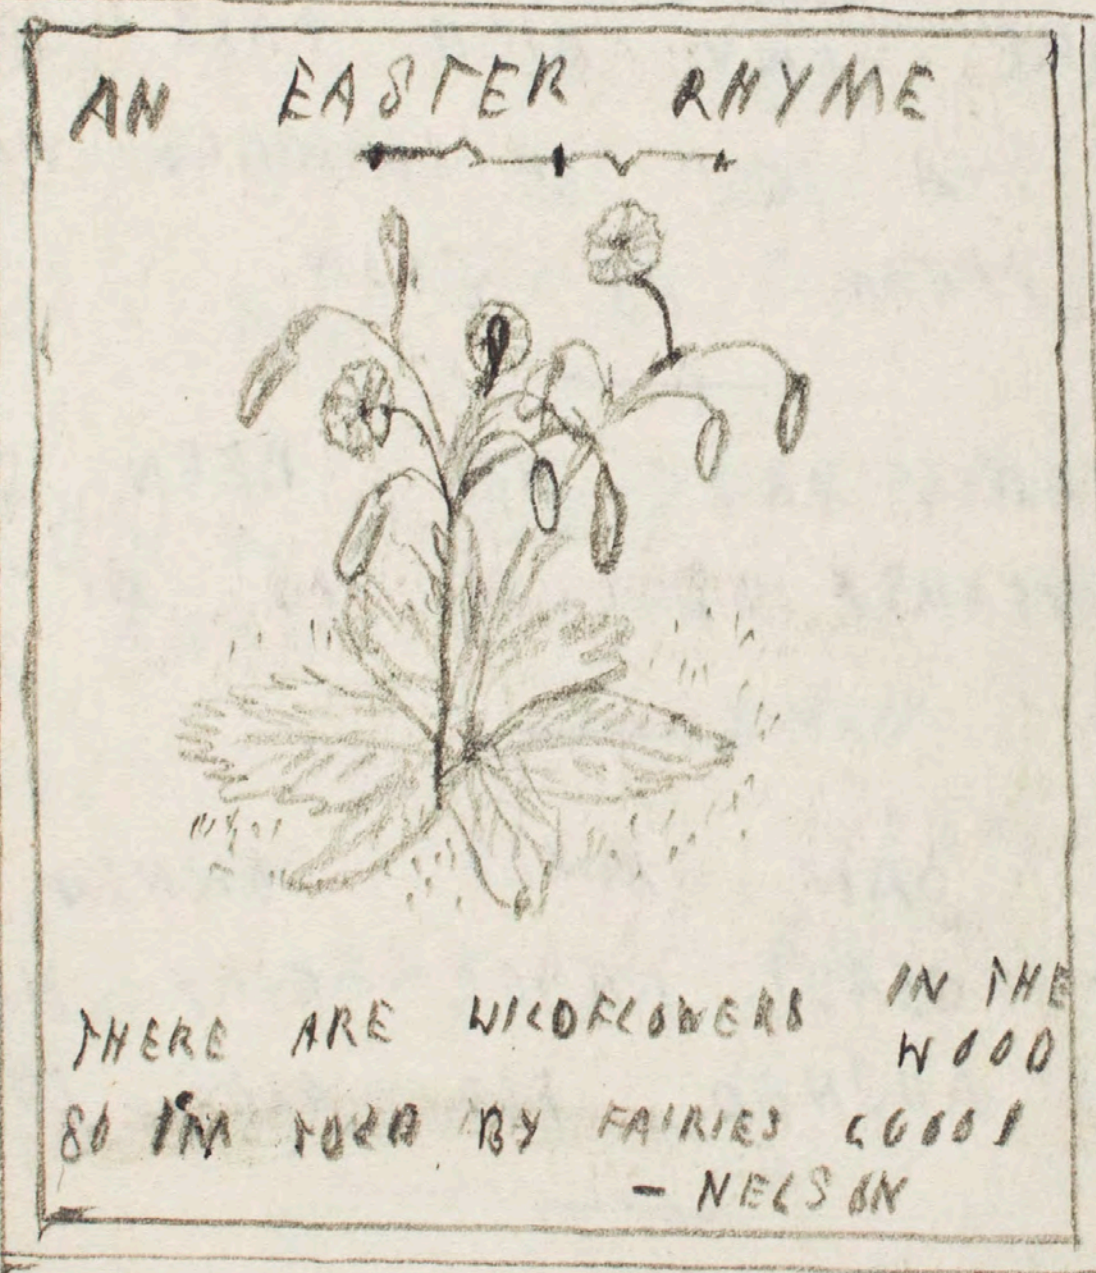 AN EASTER RHYME
THERE ARE WILDFLOWERS IN THE
WOOD
SO I'M TOLD BY FAIRIES GOOD
- NELSON